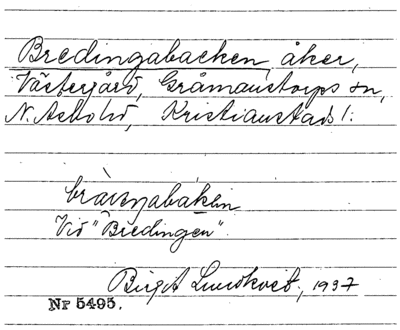 Bredingabacken, åker,
Västergård, Gråmanstorps sn,
N. Åsbo hd, Kristianstads l.
bräiŋabakin
Vid "Bredingen".
Birgit Lundkvist, 1937
Nr 5495.